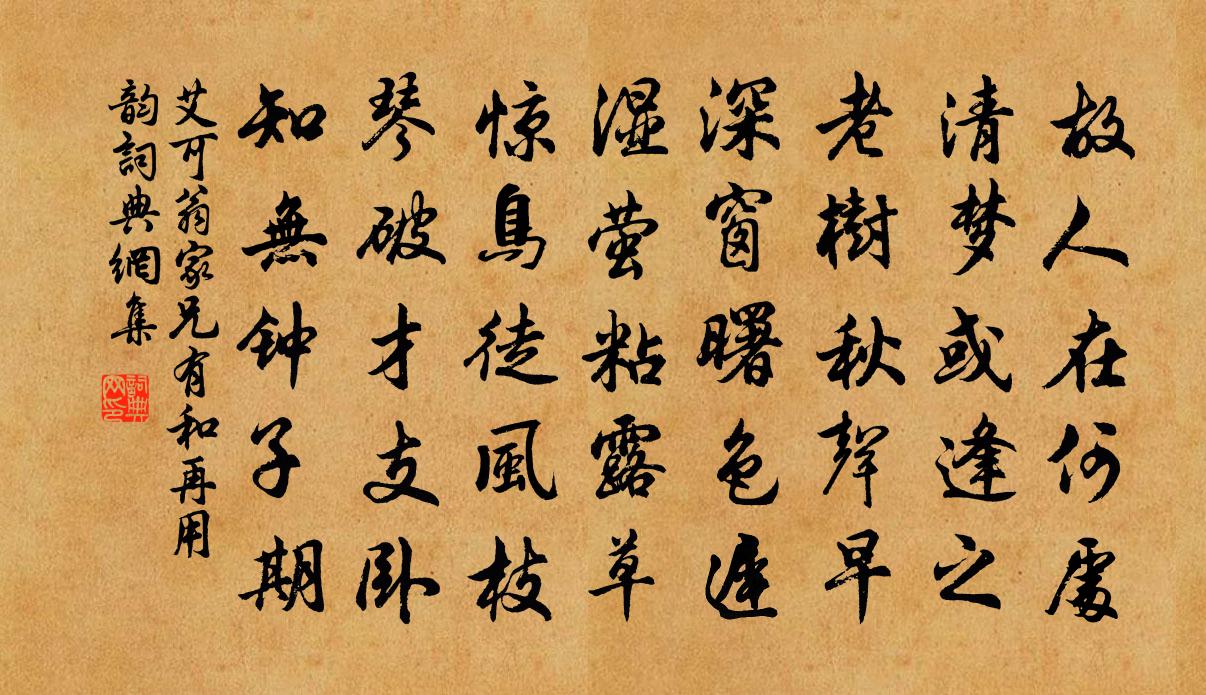 故人在何處
清梦或逢之
老樹秋聲早
深窗曙色遲
湿萤粘露草
惊鳥徒風枝
琴破才支卧
知無钟子期
艾可翁家兄有和再用
韵詞典網集
詞典网印